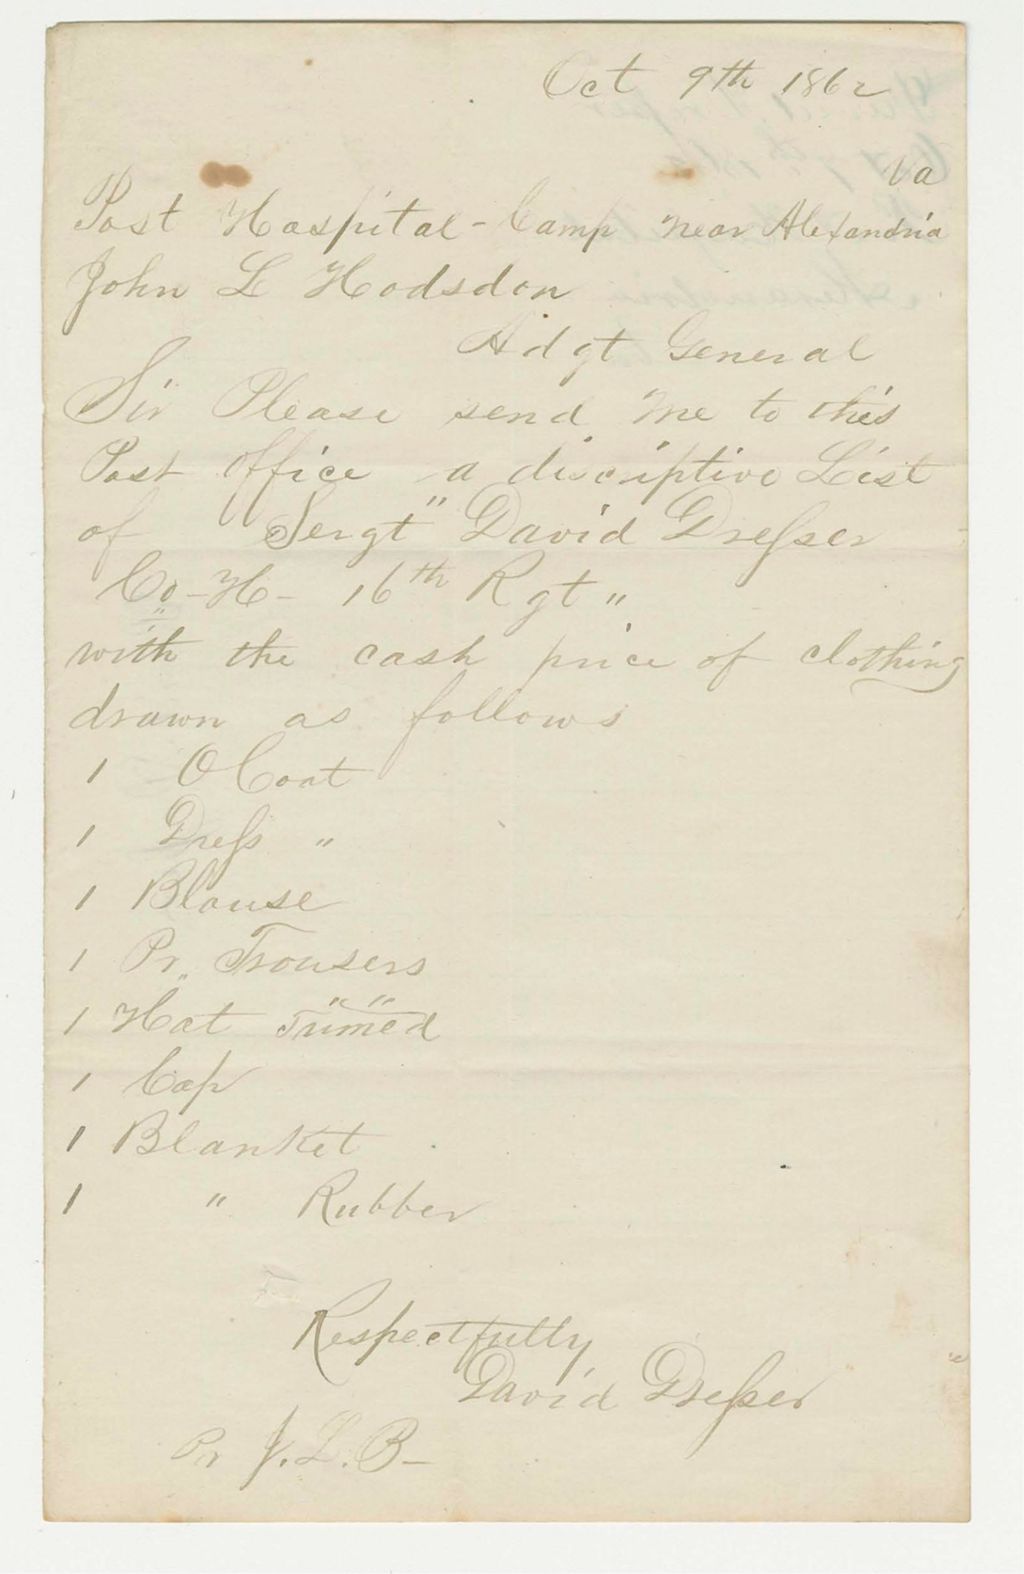 Oct 9th 1862
Va
Post Hospital - Camp near Alexandria
John L Hodsdon
Adgt General
Sir Please send me to this
Post Office a discriptive List
of Sergt" David Dresser
Co - H - 16th Rgt "
with the cash price of clothing
drawn as follows
1 O Coat
1 Dress "
1 Blouse
1 Pr. Trousers
1 Hat Trimed
1 Cap
1 Blanket
1 " Rubber
Respectfully
David Dresser
Pr J. L. B -